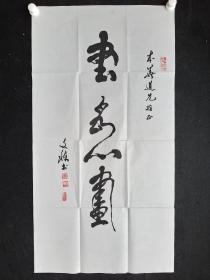 書為心畫
本華道兄指正
文雄書